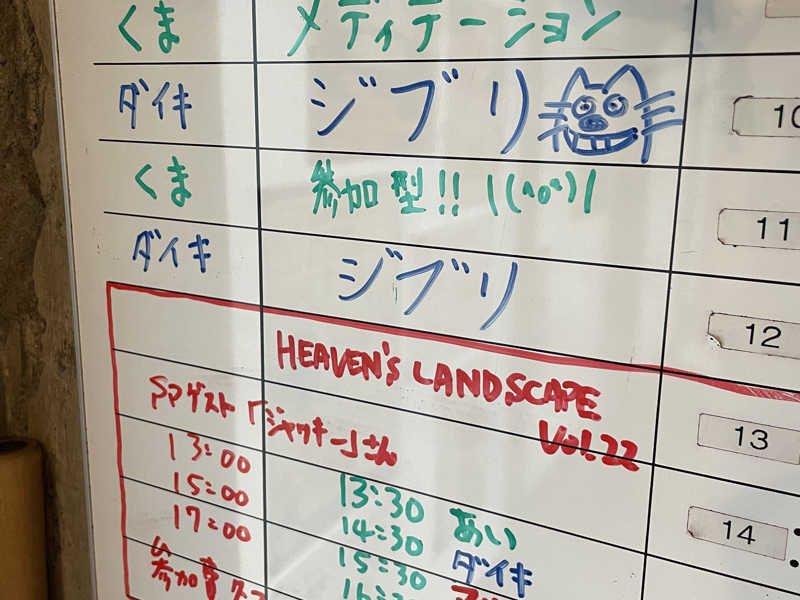 くま メディテーション
ダイキ ジブリ 10
くま 参加型!! \(^o^)/ 11
ダイキ ジブリ 12
HEAVEN'S LANDSCAPE
Vol.22
13
SPゲスト「ジャッキー」さん
13:00
15:00
17:00
13:30 あい
14:30 ダイキ
15:30
14
参加